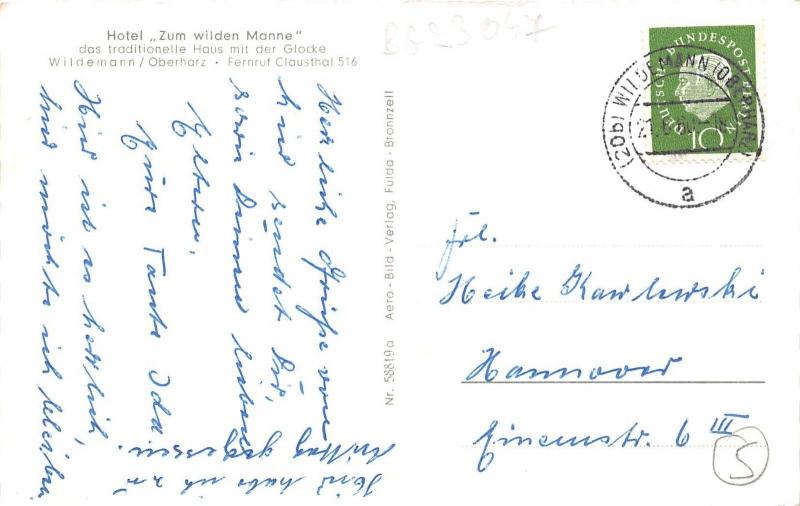 Hotel „Zum wilden Manne"
das traditionelle Haus mit der Glocke
Wildemann/Oberharz · Fernruf Clausthal 516
Herzliche Grüße von
hier sendet Dir,
sowie Deinen lieben
Eltern,
Eure Tante Ida
Hier ist es herrlich,
hier möchte ich bleiben
Hier habe ich zu
Mittag gegessen.
Nr. 58819a Aero - Bild - Verlag, Fulda - Bronnzell
B623047
DEUTSCHE BUNDESPOST BERLIN
10
(20b) WILDEMANN (OBERHARZ)
a
Frl.
Heike Kawlewski
Hannover
Einemstr. 6 III
S